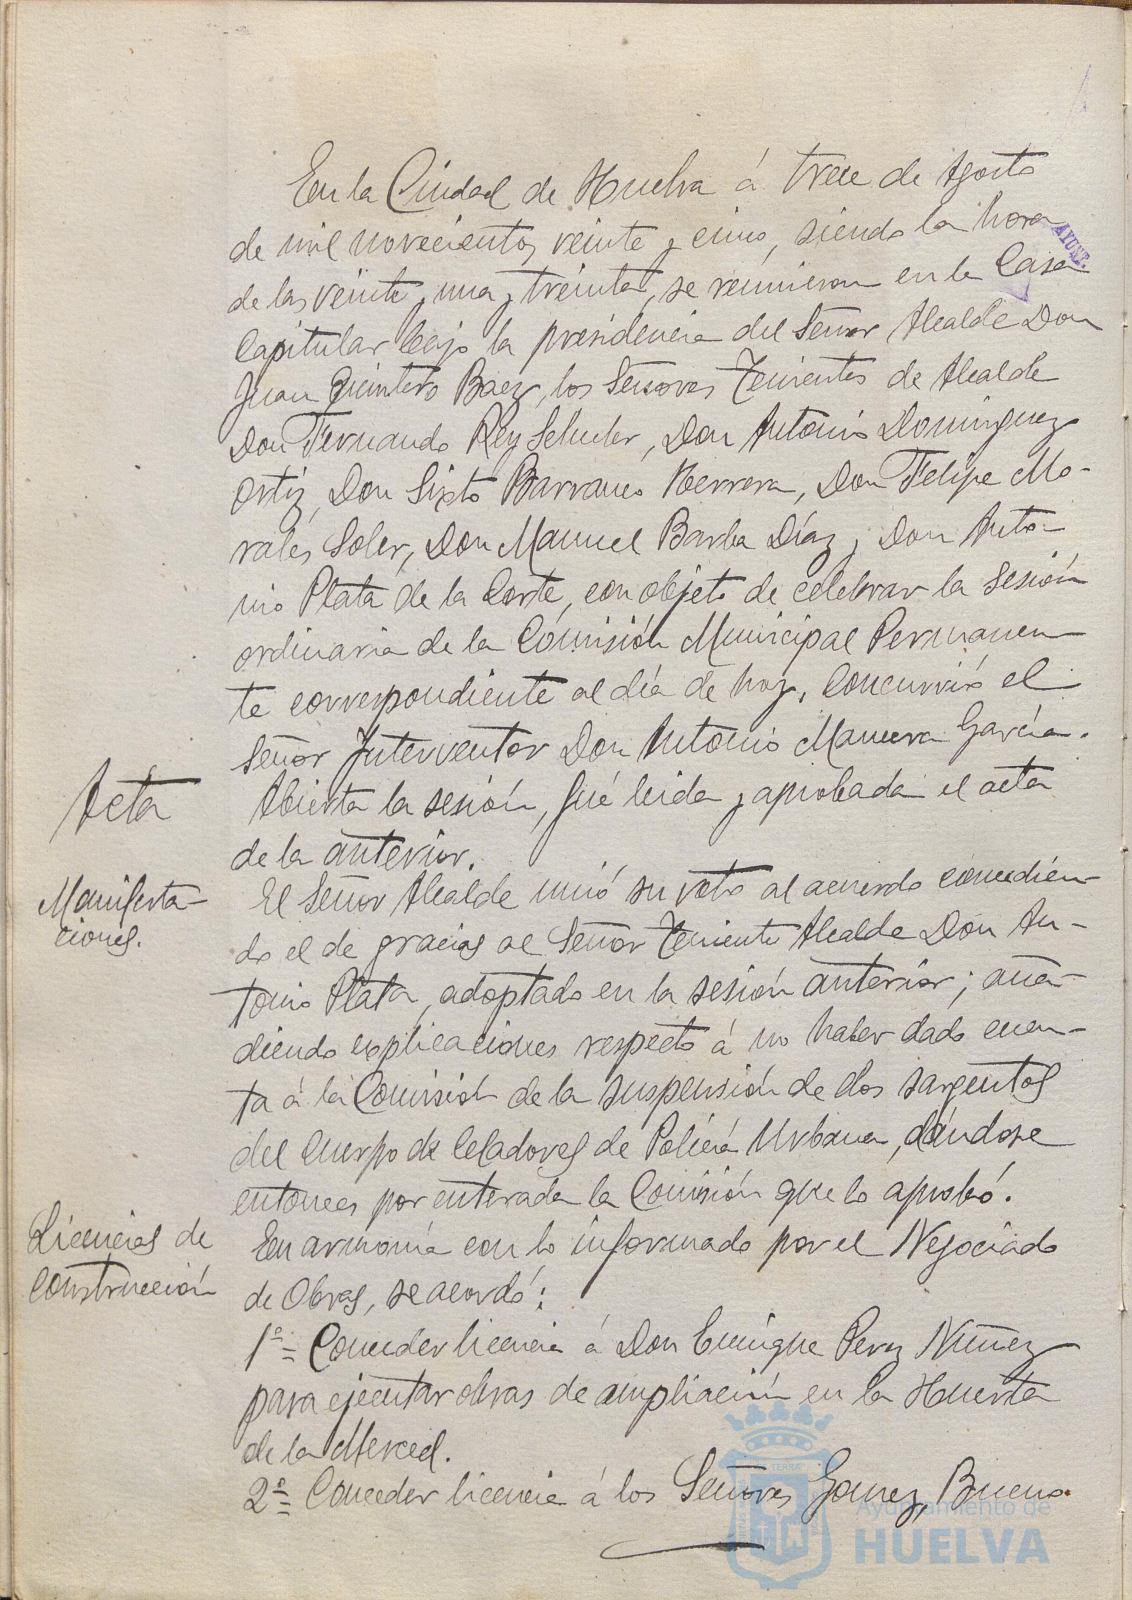 En la Ciudad de Huelva á trece de Agosto
de mil novecientos veinte y cinco, siendo la hora
AYUNT.
de las veinte y una y treinta, se reunieron en la Casa
Capitular bajo la presidencia del Señor Alcalde Don
Juan Quintero Baez, los Señores Tenientes de Alcalde
Don Fernando Rey Schuler, Don Antonio Dominguez
Ortiz, Don Sixto Barranco Herrera, Don Felipe Mo-
rales Soler, Don Manuel Barba Díaz y Don Anto-
nio Plata de la Corte, con objeto de celebrar la sesión
ordinaria de la Comisión Municipal Permanen-
te correspondiente al día de hoy. Concurrió el
Señor Interventor Don Antonio Manuera García.
Acta
Abierta la sesión, fué leida y aprobada el acta
de la anterior.
Manifesta-
ciones.
El Señor Alcalde unió su voto al acuerdo concedien-
do el de gracias al Señor Teniente Alcalde Don An-
tonio Plata, adoptado en la sesión anterior; aña-
diendo explicaciones respecto á no haber dado cuen-
ta á la Comisión de la suspensión de dos sargentos
del Cuerpo de Celadores de Policía Urbana, dándose
entonces por enterada la Comisión que lo aprobó.
Licencias de
construcción
En armonía con lo informado por el Negociado
de Obras, se acordó:
1º= Conceder licencia á Don Enrique Perez Núñez
para ejecutar obras de ampliación en la Huerta
de la Merced.
2º= Conceder licencia á los Señores Gomez, Bueno
TERRA
Ayuntamiento de
HUELVA